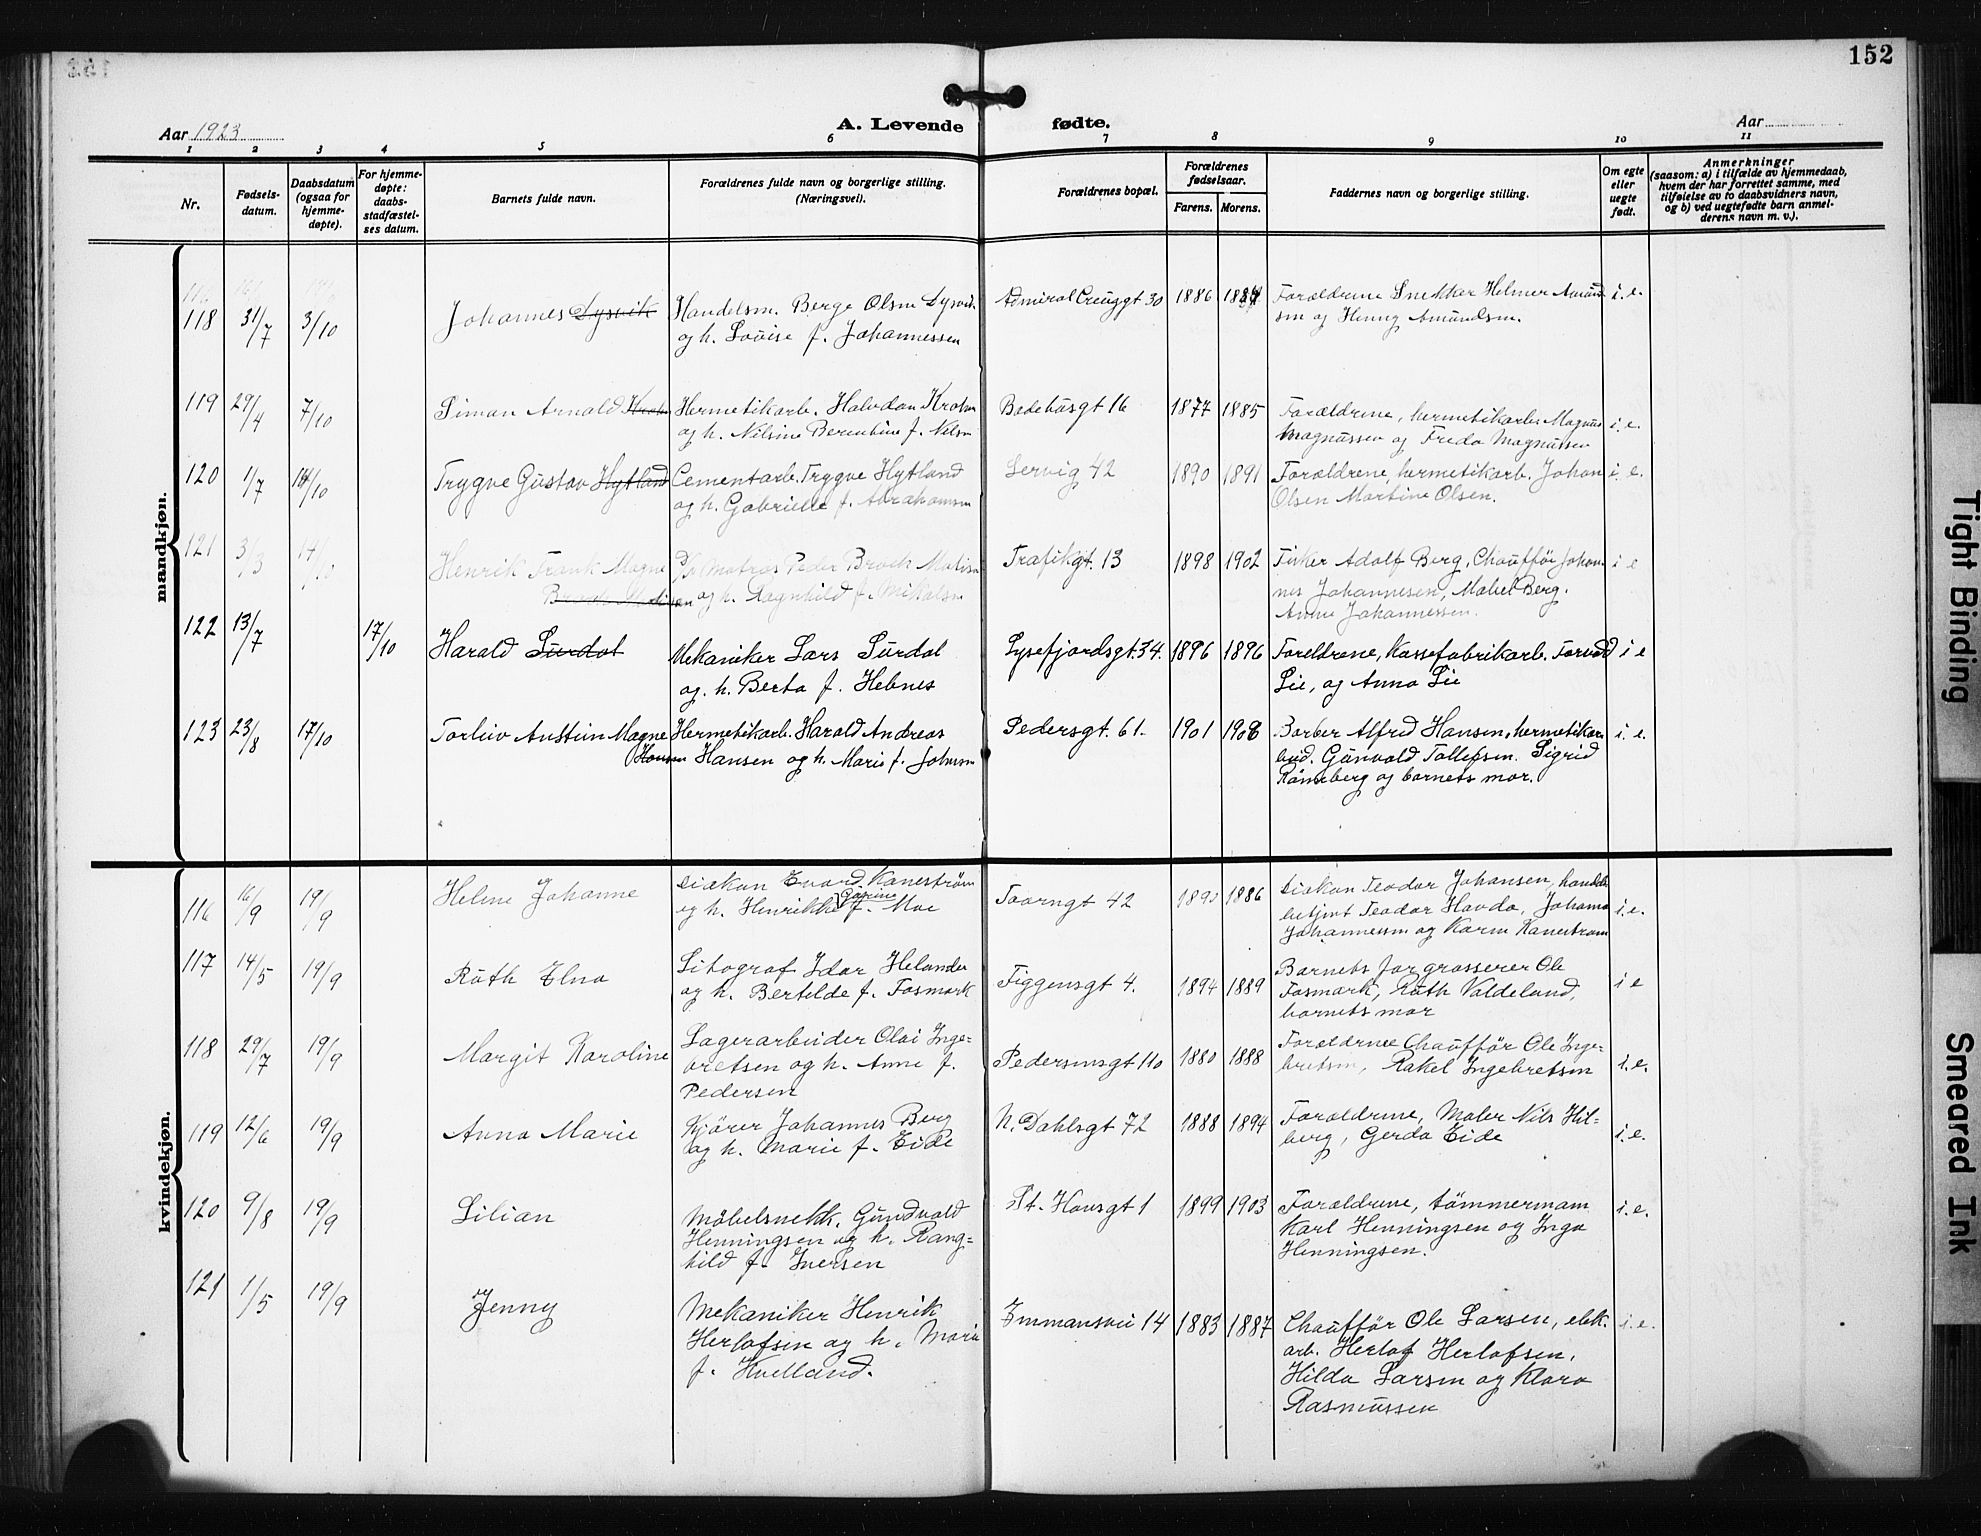 152
Aar 1923
A. Levende fødte.
Aar
1 2 3 4 5 6 7 8 9 10 11
Nr.
Fødsels-
datum.
Daabsdatum
(ogsaa for
hjemme-
døpte).
For hjemme-
døpte:
daabs-
stadfæstel-
ses datum.
Barnets fulde navn.
Forældrenes fulde navn og borgerlige stilling.
(Næringsvei).
Forældrenes bopæl.
Forældrenes
fødselsaar.
Farens. Morens.
Faddernes navn og borgerlige stilling.
Om egte
eller
uegte
født.
Anmerkninger
(saasom: a) i tilfælde av hjemmedaab,
hvem der har forrettet samme, med
tilføielse av to daabsvidners navn,
og b) ved uegtefødte barn anmel-
derens navn m. v.).
mandkjøn.
118 31/7 3/10 Johannes Dysvik Handelsm. Berge Olsen Dysvik Admiral Creuggt 30 1886 Forældrene Snekker Helmer Amund i. e.
og h. Lovise f. Johannessen
sen og Henny Amundsen.
119 29/4 7/10 Simon Arnold Krohn Hermetikarb. Halvdan Krohn Badehusgt 16 1877 1885 Forældrene, hermetikarb. Magnus i. e.
og h. Nilsine Berentine f. Nilsen
Magnussen og Freda Magnussen
120 1/7 14/10 Trygve Gustav Hytland Cementarb. Trygve Hytland Lervig 42 1890 1891 Forældrene, hermetikarb. Johan i. e.
og h. Gabrielle f. Abrahamsen
Olsen Martine Olsen.
121 3/3 14/10 Henrik Frank Magne Matros Peder Broch Matisen Trafikgt. 13 1898 1902 Tirker Adolf Berg, Chauffør Johan i e
Broch Matisen og h. Ragnhild f. Mikalsen
nes Johannesen, Mabel Berg.
Anna Johannessen.
122 13/7 17/10 Harald Surdal Mekaniker Lars Surdal Lysefjordsgt. 34. 1896 1896 Foreldrene, Kassefabrikarb. Torvald i e
og. h. Berta f. Hebnes
Lie, og Anna Lie
123 23/8 17/10 Torleiv Austein Magne Hermetikarb. Harald Andreas Pedersgt. 61. 1901 1908 Barber Alfred Hansen, hermetikar i. e.
Hansen Hansen og h. Marie f. Johnsen
beid. Gunvald Tollefsen. Sigrid
Rønneberg og barnets mor.
kvindekjøn.
116 16/9 19/9 Helene Johanne Diakon Evard Kanestrøm Taarngt 42 1890 1886 Diakon Teodor Johansen, handels i. e.
og h. Henrikke Gurine f. Moe
betjent Teodor Havda, Johanna
Johannessen og Karen Kanestrøm
117 14/5 19/9 Ruth Elna Litograf Idar Helander Tiggensgt 4. 1894 1889 Barnets far grosserer Ole i e
og h. Bertilde f. Fosmark
Fosmark, Ruth Valdeland,
barnets mor
118 29/7 19/9 Margit Karoline Lagerarbeider Olai Inge- Pedersensgt 110 1880 1888 Forældrene Chauffør Ole Inge- i. e.
bretsen og h. Anne f.
Pedersen
bretsen, Rakel Ingebretsen
119 12/6 19/9 Anna Marie Kjører Johannes Berg N. Dahlsgt 72 1888 1894 Forældrene, Maler Nils Hil- i. e.
og h. Marie f. Eide
berg, Gerda Eide
120 9/8 19/9 Lilian Møbelsnekk. Gundvald St. Hansgt 1 1899 1903 Forældrene, tømmermann i. e.
Henningsen og h. Rang-
hild f. Iversen
Karl Henningsen og Inga
Henningsen.
121 1/5 19/9 Jenny Mekaniker Henrik 14 1883 1887 Chauffør Ole Larsen, elek. i. e.
Herlofsen og h. Marie
f. Kvelland.
arb. Herlof Herlofsen,
Hilda Larsen og Klara
Rasmussen
Tight Binding
Smeared Ink